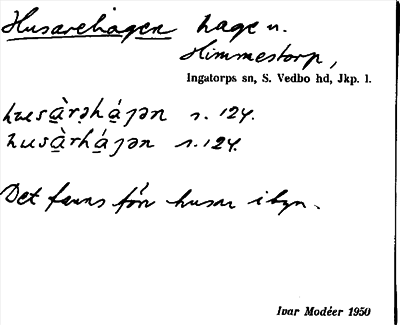 Husarehagen hage u.
Himmestorp,
Ingatorps sn, S. Vedbo hd, Jkp. l.
husàrəhágən s. 124.
husàrhágən s. 124.
Det fanns förr husar i byn.
Ivar Modéer 1950